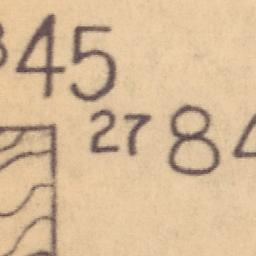 45
27 84